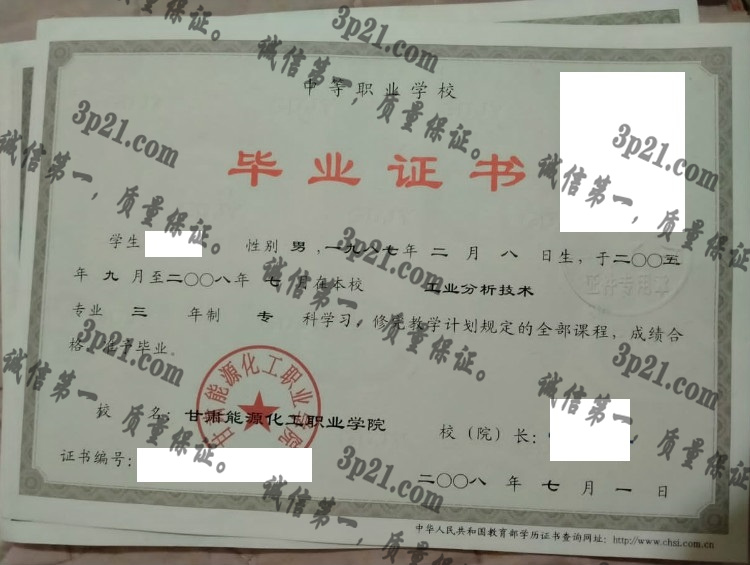 中等职业学校
毕业证书
学生 性别 男，一九八七年 二 月 八 日生，于二〇〇五
年 九 月至二〇〇八年 七 月在本校 工业分析技术
专业 三 年制 专 科学习，修完教学计划规定的全部课程，成绩合
格，准予毕业。
证件专用章
甘肃能源化工职业学院
校 名：甘肃能源化工职业学院
校（院）长：
证书编号：
二〇〇八 年 七 月 一 日
中华人民共和国教育部学历证书查询网址：http://www.chsi.com.cn
3p21.com
诚信第一，质量保证。
3p21.com
诚信第一，质量保证。
3p21.com
诚信第一，质量保证。
3p21.com
诚信第一，质量保证。
3p21.com
诚信第一，质量保证。
3p21.com
诚信第一，质量保证。
3p21.com
诚信第一，质量保证。
3p21.com
诚信第一，质量保证。